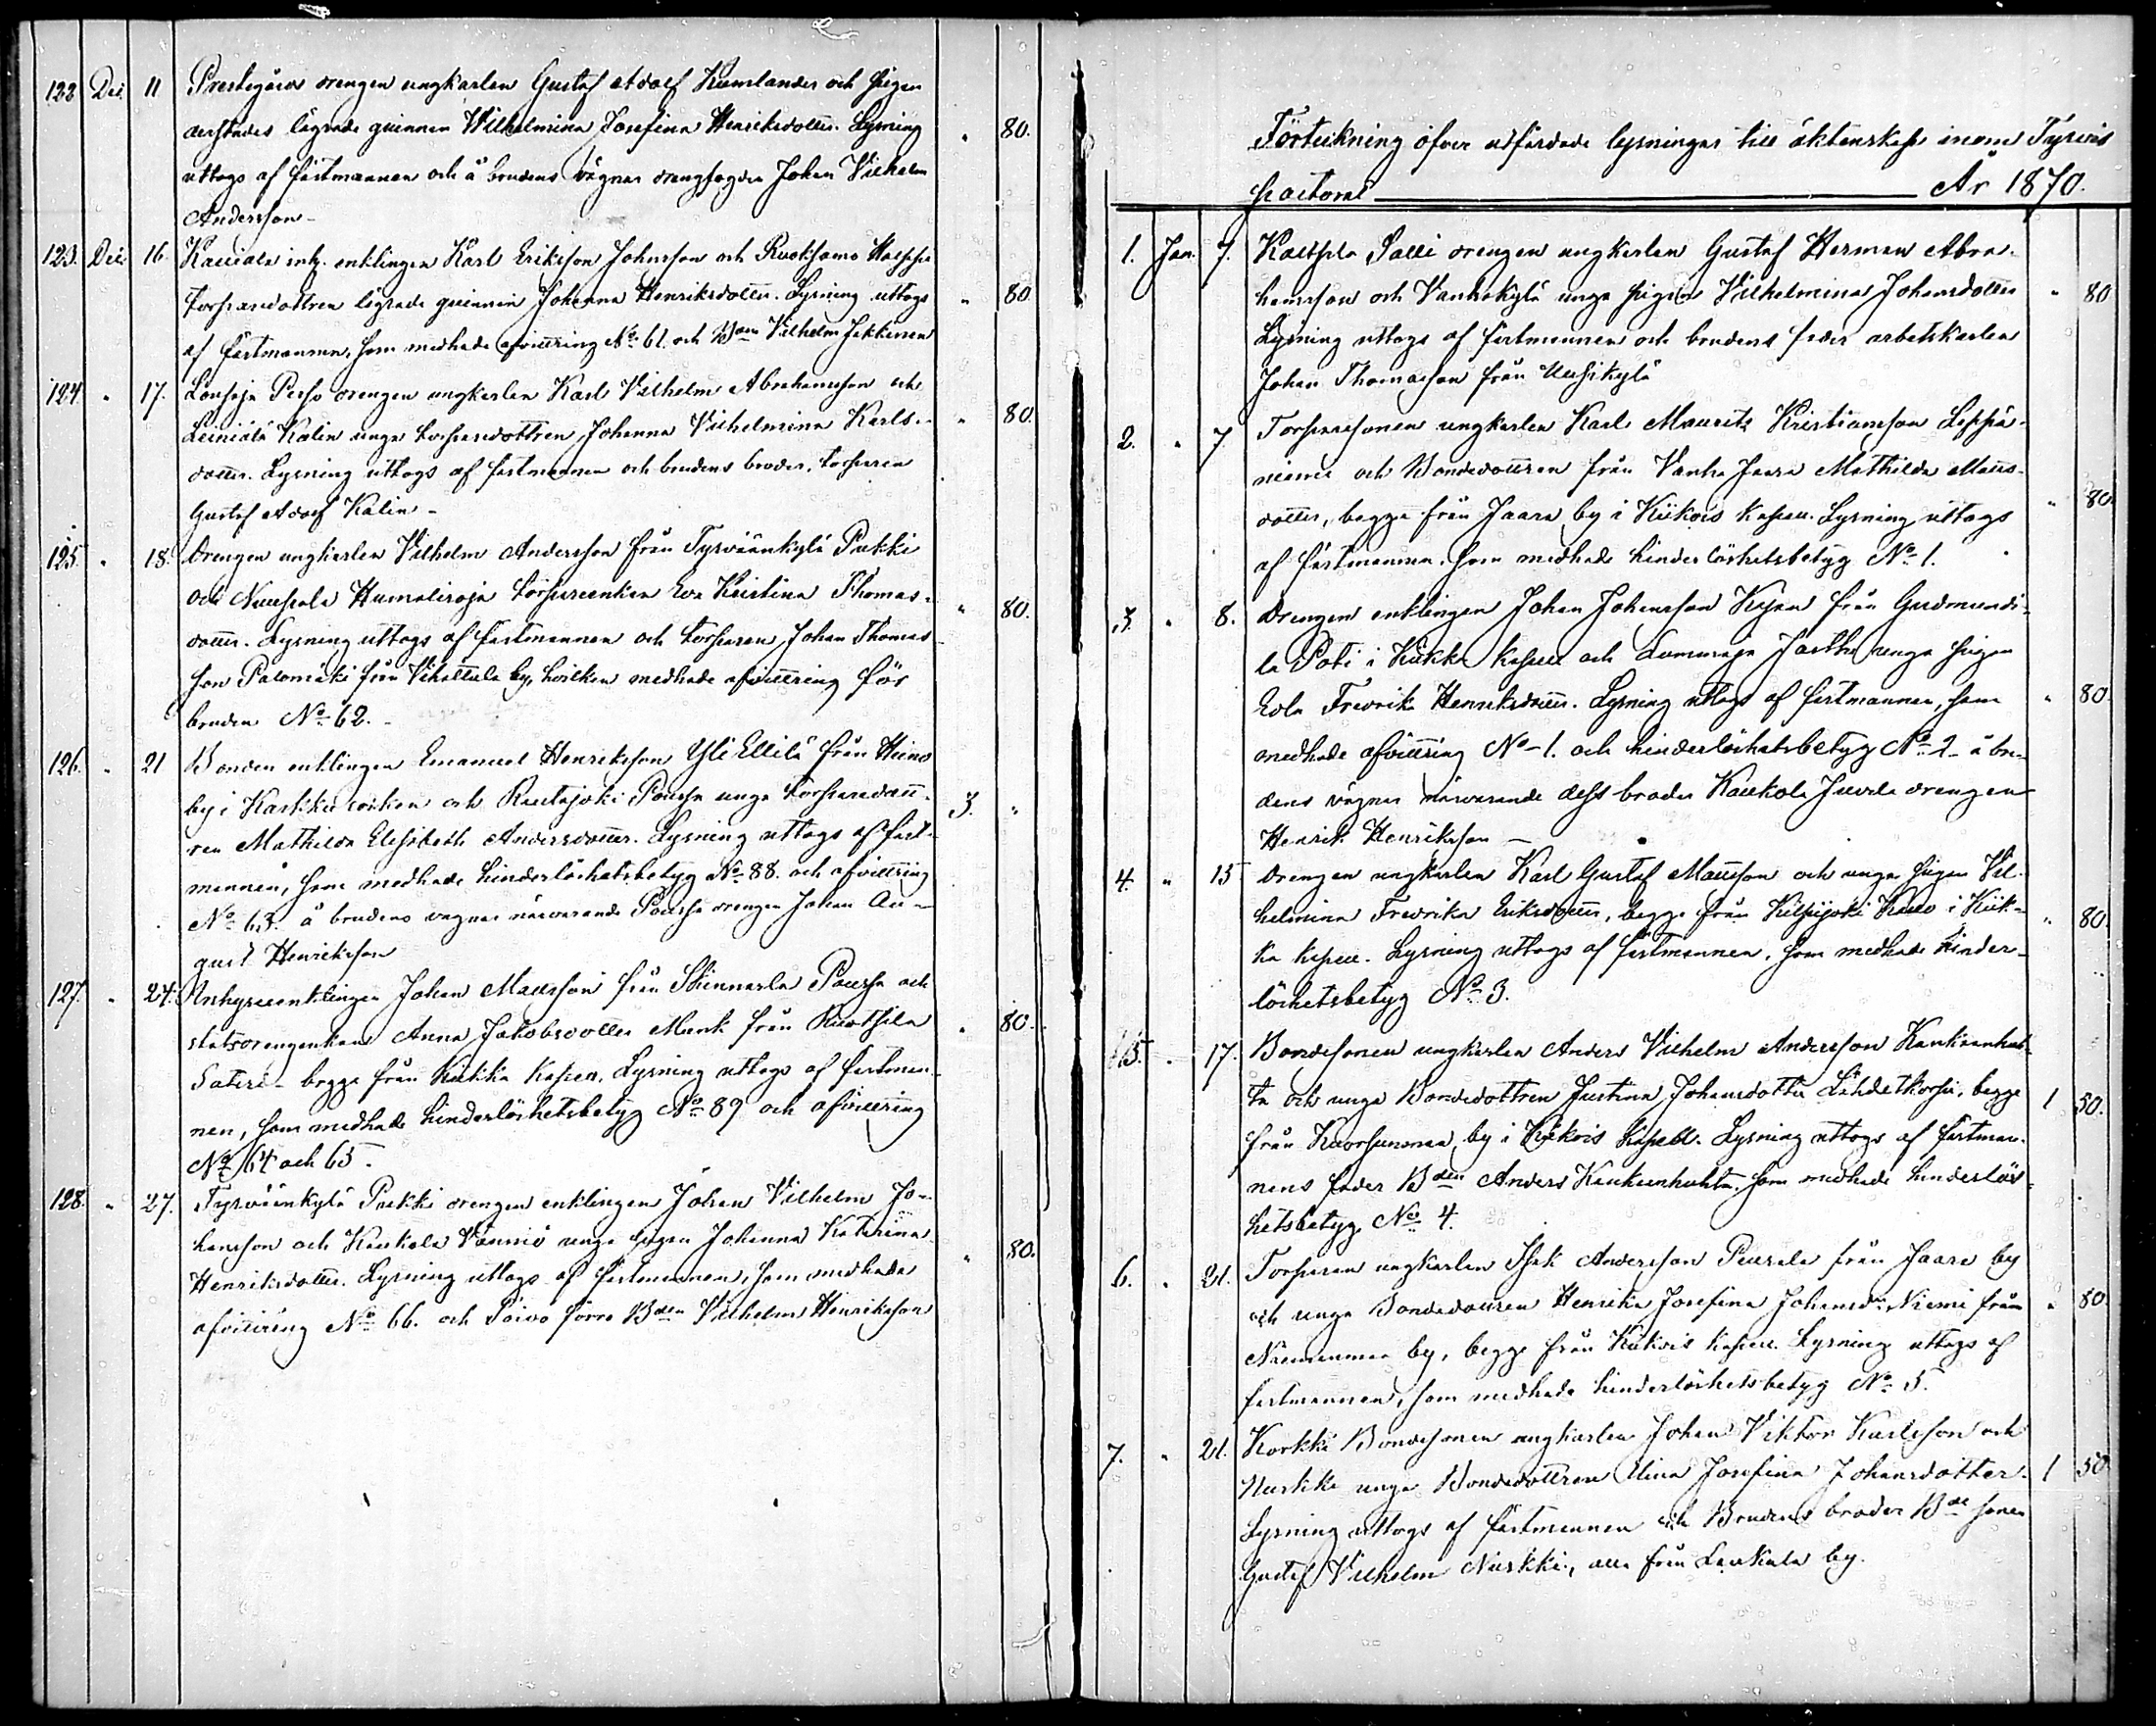 122 Dec. 11 Prestegårds drengen ungkarlen Gustaf Adolf Kumlander och pigan
derstädes lägrade quinnan Wilhelmina Josefina Henriksdotter. Lysning " 80.
uttogs af fästmannen och å brudens vägnar drengfogden Johan Vilhelm
Andersson
123. Dec 16 inh. enklingen Karl Eriksson Johnsson och
torparedottren lägrade quinnan Johanna Henriksdotter. Lysning uttogs " 80
af fästmannen, som medhade afvittring No 61 och Vilhelm
124. " 17. drengen ungkarlen Karl Vilhelm Abrahamsson och
Leiniälä Kalin unga torparedottren Johanna Vilhelmina Karls- " 80.
dotter. Lysning uttogs af fästmannen och brudens broder, torparen
Gustaf Adolf Kalin
125. " 18. Drengen ungkarlen Vilhelm Andersson från Tyrväänkylä Pukki
och Nuupala Humaliroja torpareenkan Eva Kristina Thomas- " 80.
dotter. Lysning uttogs af fästmannen och torparen Johan Thomas-
son Palomäki från Vihattula by, hvilken medhade afvittring för
bruden No 62.
126. " 21 Bonden enklingen Emanuel Henriksson Yli Ellilä från Heino
by i Karkku socken och Rautajoki unga torparedott- 3. "
ren Mathilda Elisabeth Andersdotter. Lysning uttogs af fäst-
mannen, som medhade hinderlöshetsbetyg No 88. och afvittring
No 63. å brudens vägnar närvarande drengen Johan Au-
gust Henriksson
127. " 24. Inhyseenklingen Johan Mattsson från och
statsdrengenkan Anna Jakobsdotter Munk från Ruotsila " 80.
Säteri - begge från Kiikka Kapell. Lysning uttogs af fästman-
nen, som medhade hinderlöshetsbetyg No 89 och afvittring
No 64 och 65.
128. " 27. Tyrväänkylä Pukki drengen enklingen Johan Vilhelm Jo-
hansson och Kaukola unga pigan Johanna Katarina " 80.
Henriksdotter. Lysning uttogs af fästmannen, som medhade
afvittring No 66. och förre Bden Vilhelm Henriksson
Förteckning öfver utfärdade lysningar till äktenskap inom Tyrvis
pastorat År 1870.
1. Jan. 7. Salli drengen ungkarlen Gustaf Herman Abra-
hamsson och Vanhakylä unga pigan Vilhelmina Johansdotter " 80
Lysning uttogs af fästmannen och brudens fader arbetskarlen
Johan Thomasson från Uusikylä
2. " 7 Torparesonen ungkarlen Karl Maurits Kristiansson Leppä-
niemi och Bondedottren från Vanha Jaara Mathilda Matts-
dotter, begge från Jaara by i Kiikois kapell. Lysning uttogs " 80
af fästmannen, som medhade hinderlöshetsbetyg No 1.
3. " 8. Drengen enklingen Johan Johansson från Gudmunds-
la i Kiikka kapell och unga pigan
Eva Fredrika Henriksdotter. Lysning uttogs af fästmannen, som " 80.
medhade afvittring No 1. och hinderlöshetsbetyg No 2 å bru-
dens vägnar närvarande dess broder Kaukola drengen
Henrik Henriksson
4. " 15 Drengen ungkarlen Karl Gustaf Mattsson och unga pigan Vil-
helmina Fredrika Eriksdotter, begge från Kilpijoki i Kiik- " 80.
ka kapell. Lysning uttogs af fästmannen, som medhade hinder-
löshetsbetyg No 3.
5. " 17. Bondesonen ungkarlen Anders Vilhelm Andersson Kankaanhuh-
ta och unga Bondedottren Justina Johansdotter Lähdekorpi, begge 1 50.
från Kuorsunmaa by i Kiikois kapell. Lysning uttogs af fästman-
nens fader Bden Anders Kankaanhuhta, som medhade hinderlös-
hetsbetyg No 4.
6. " 21. Torparen ungkarlen Isak Andersson från Jaara by
och unga Bondedottren Henrika Josefina Johansdr Niemi från " 80
by, begge från Kiikois kapell. Lysning uttogs af
fästmannen, som medhade hinderlöshetsbetyg No 5.
7. " 21. Korkki Bondesonen ungkarlen Johan Viktor Karlsson och
Nuskki unga Bondedottren Josefina Johansdotter. 1 50
Lysning uttogs af fästmannen och Brudens broder Bde sonen
Gustaf Vilhelm Nuskki, alla från Laukula by.